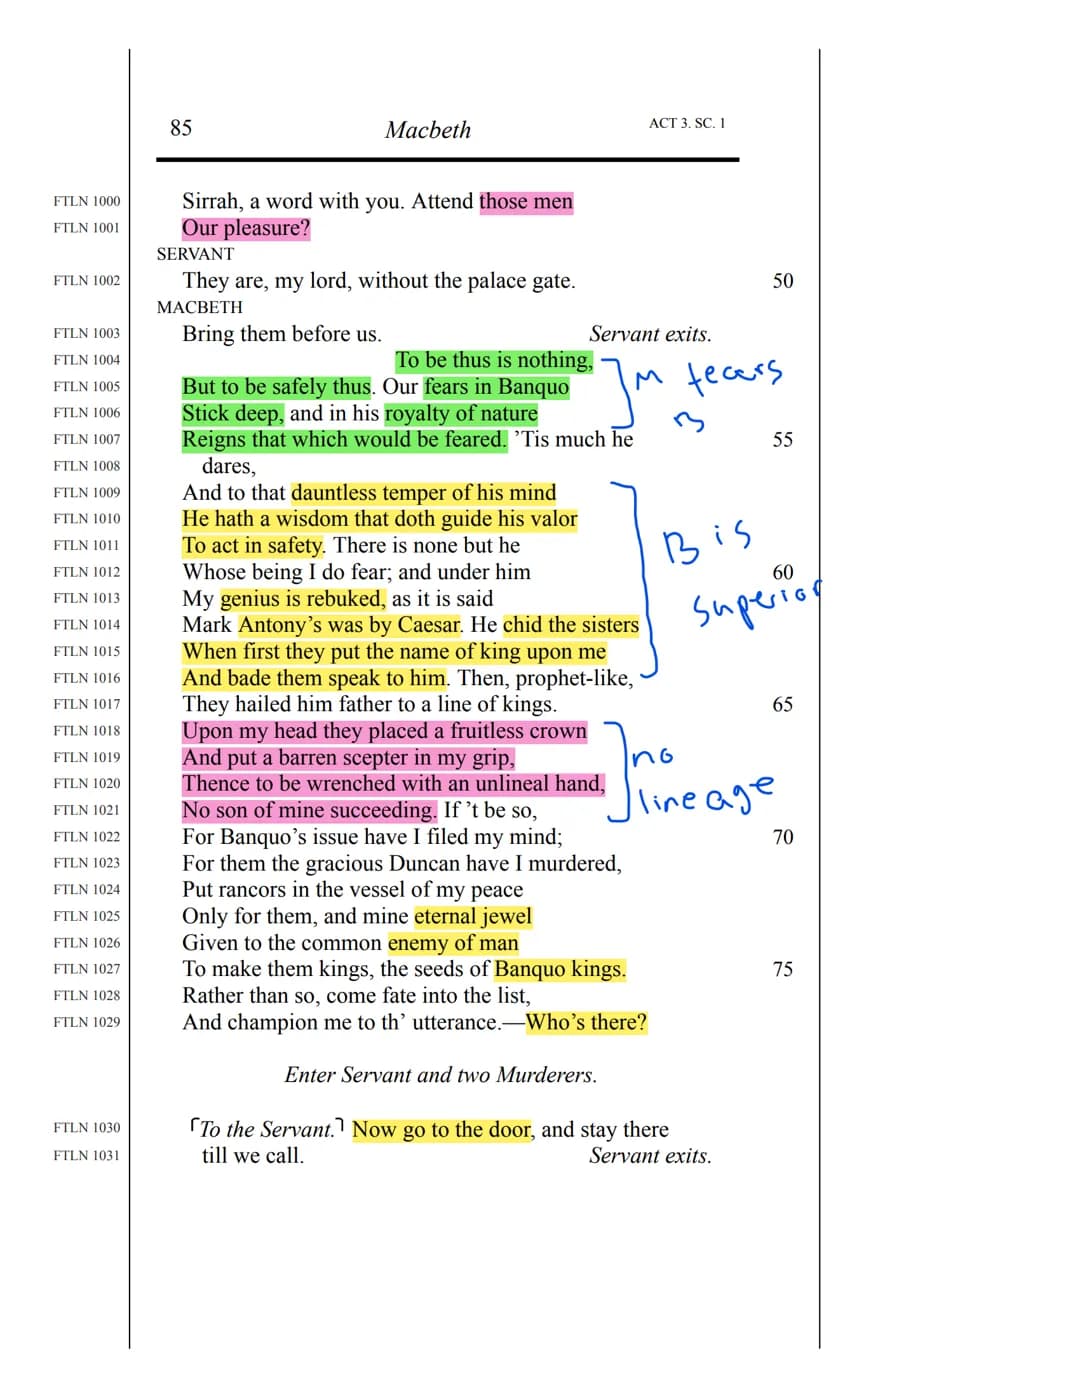 85 Macbeth ACT 3. SC. 1
FTLN 1000 Sirrah, a word with you. Attend those men
FTLN 1001 Our pleasure?
SERVANT
FTLN 1002 They are, my lord, without the palace gate. 50
MACBETH
FTLN 1003 Bring them before us. Servant exits.
FTLN 1004 To be thus is nothing,
FTLN 1005 But to be safely thus. Our fears in Banquo
FTLN 1006 Stick deep, and in his royalty of nature
FTLN 1007 Reigns that which would be feared. ’Tis much he 55
FTLN 1008 dares,
FTLN 1009 And to that dauntless temper of his mind
FTLN 1010 He hath a wisdom that doth guide his valor
FTLN 1011 To act in safety. There is none but he
FTLN 1012 Whose being I do fear; and under him 60
FTLN 1013 My genius is rebuked, as it is said
FTLN 1014 Mark Antony’s was by Caesar. He chid the sisters
FTLN 1015 When first they put the name of king upon me
FTLN 1016 And bade them speak to him. Then, prophet-like,
FTLN 1017 They hailed him father to a line of kings. 65
FTLN 1018 Upon my head they placed a fruitless crown
FTLN 1019 And put a barren scepter in my grip,
FTLN 1020 Thence to be wrenched with an unlineal hand,
FTLN 1021 No son of mine succeeding. If ’t be so,
FTLN 1022 For Banquo’s issue have I filed my mind; 70
FTLN 1023 For them the gracious Duncan have I murdered,
FTLN 1024 Put rancors in the vessel of my peace
FTLN 1025 Only for them, and mine eternal jewel
FTLN 1026 Given to the common enemy of man
FTLN 1027 To make them kings, the seeds of Banquo kings. 75
FTLN 1028 Rather than so, come fate into the list,
FTLN 1029 And champion me to th’ utterance.—Who’s there?
Enter Servant and two Murderers.
FTLN 1030 ⌜To the Servant.⌝ Now go to the door, and stay there
FTLN 1031 till we call. Servant exits.
M fears
B
B is
superior
no
lineage